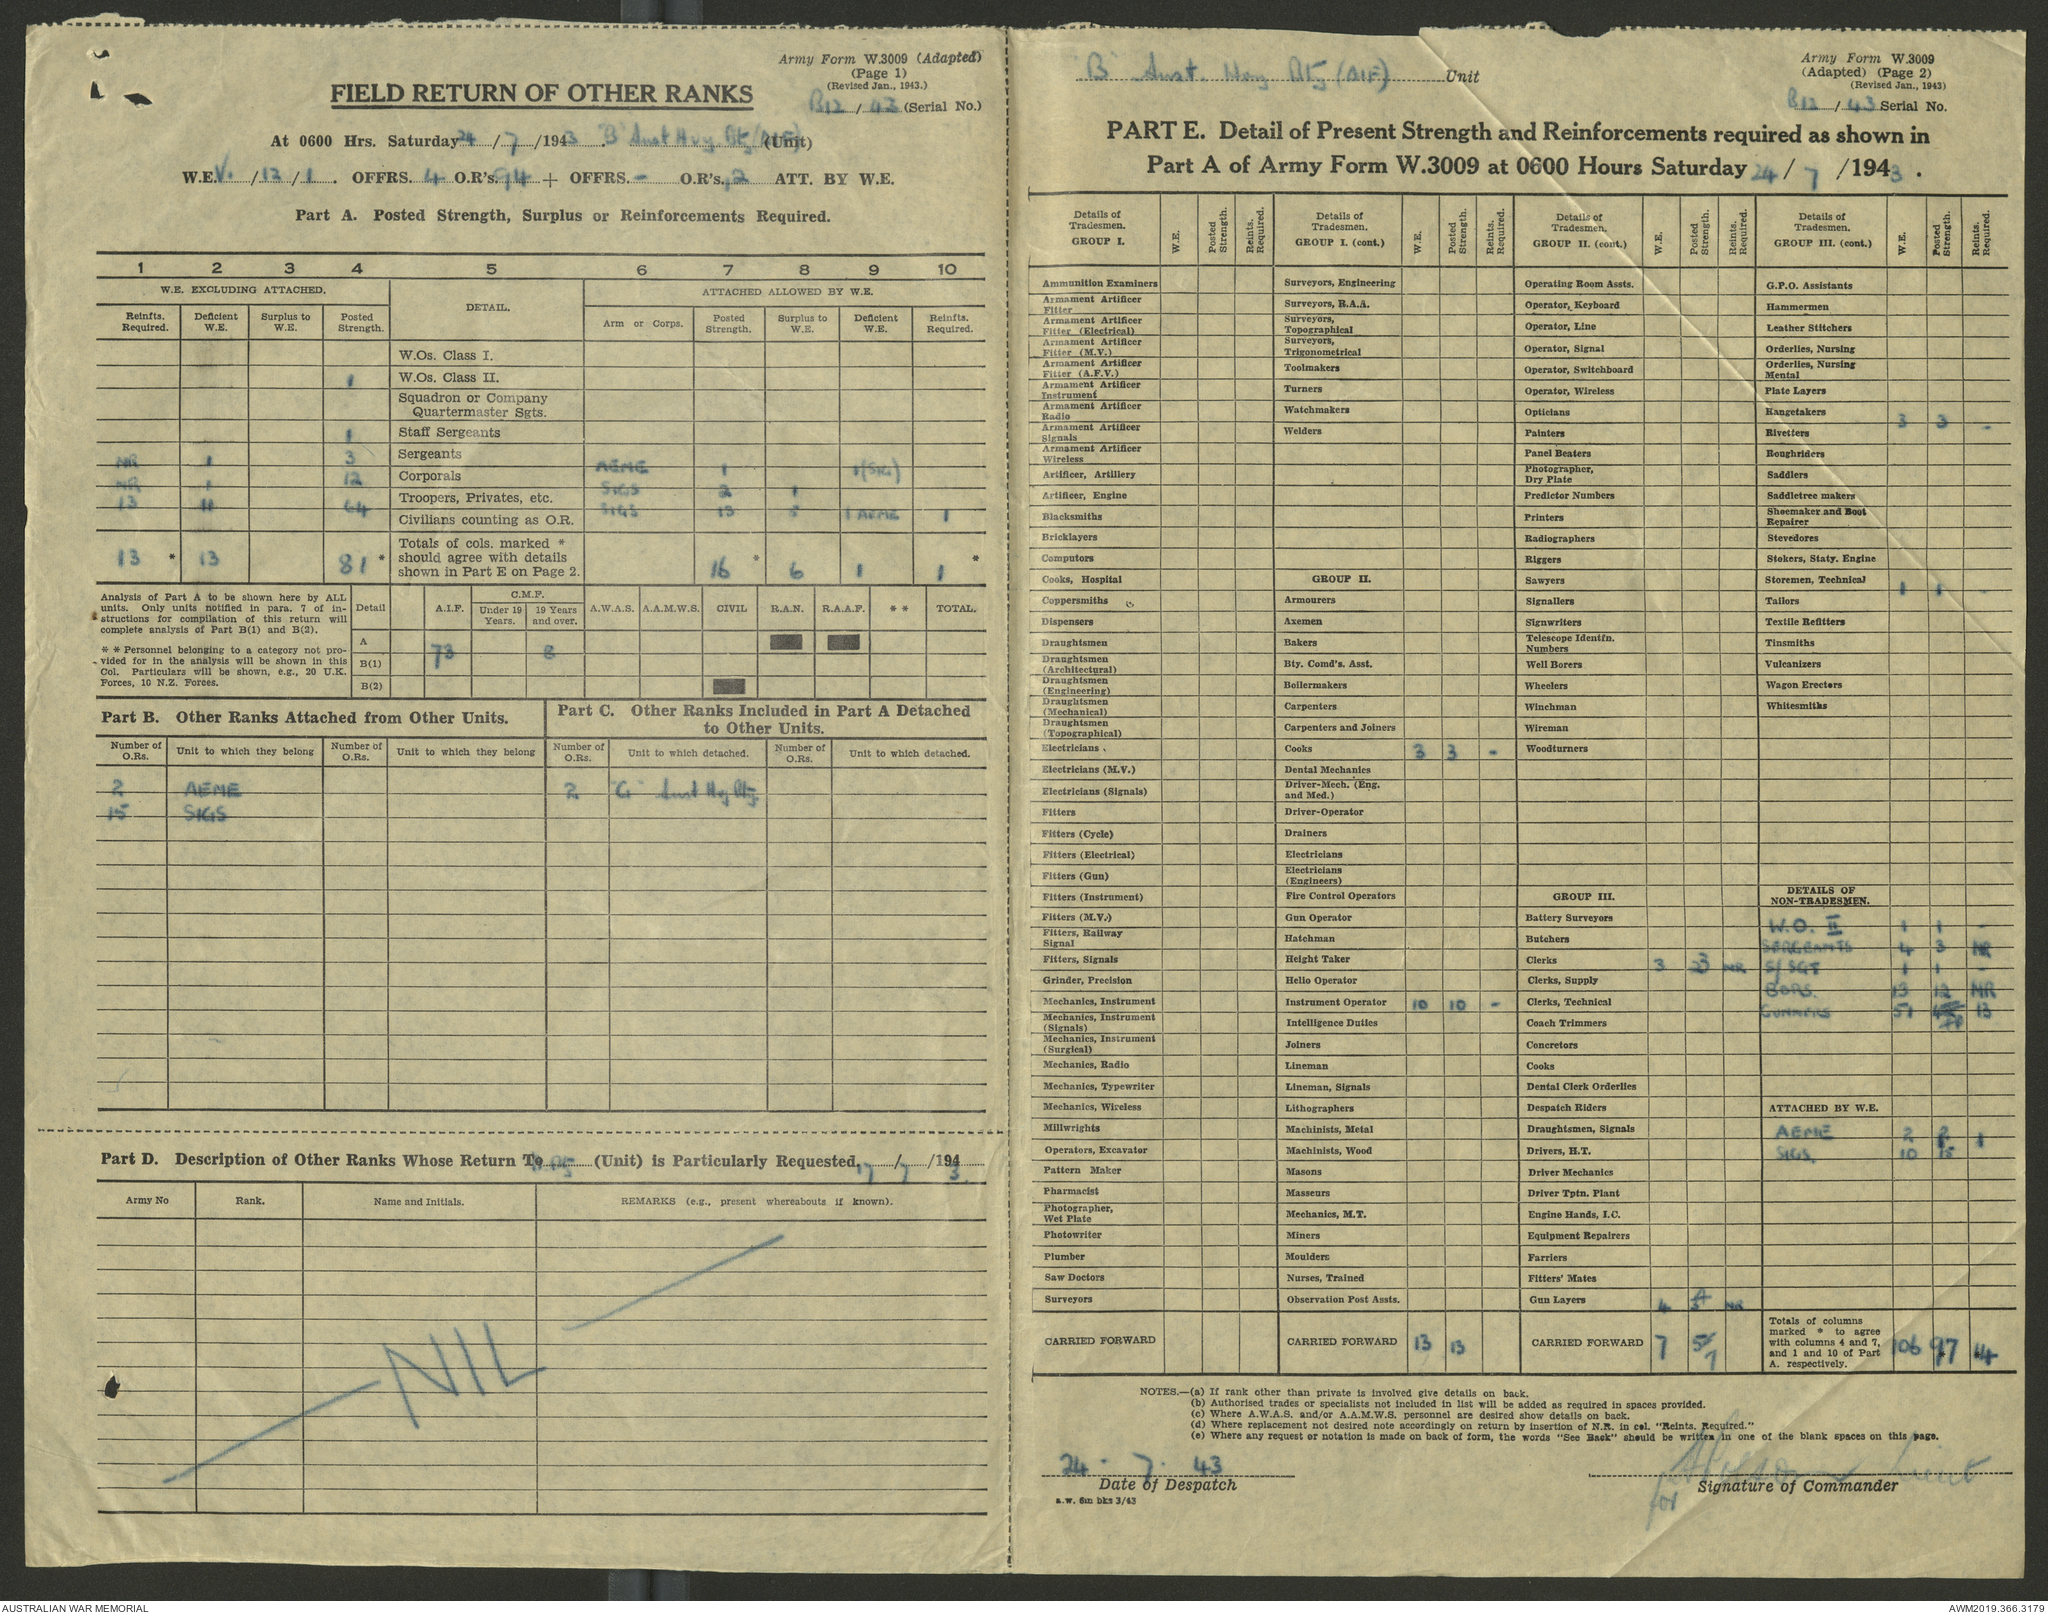 Army Form W.3009 (Adapted)
(Page 1)
(Revised Jan., 1943.)
B12 / 43 (Serial No.)
FIELD RETURN OF OTHER RANKS
At 0600 Hrs. Saturday 24 / 7 /1943. "B" Aust Hvy Bty (AIF) (Unit)
W.E. V. /13 /1 . OFFRS. 4 O.R's. 94 + OFFRS. - O.R's. 12 ATT. BY W.E.
Part A. Posted Strength, Surplus or Reinforcements Required.
1 2 3 4 5 6 7 8 9 10
W.E. EXCLUDING ATTACHED. DETAIL. ATTACHED ALLOWED BY W.E.
Reinfts. Required. Deficient W.E. Surplus to W.E. Posted Strength. Arm or Corps. Posted Strength. Surplus to W.E. Deficient W.E. Reinfts. Required.
W.Os. Class I.
1 W.Os. Class II.
Squadron or Company Quartermaster Sgts.
1 Staff Sergeants
NR 1 3 Sergeants AEME 1 1(SIG)
NR 1 12 Corporals SIGS 2 1
13 11 64 Troopers, Privates, etc. SIGS 13 5 1 AEME 1
Civilians counting as O.R.
13 * 13 81 * Totals of cols. marked * should agree with details shown in Part E on Page 2. 16 * 6 1 1 *
Analysis of Part A to be shown here by ALL units. Only units notified in para. 7 of instructions for compilation of this return will complete analysis of Part B(1) and B(2).
* * Personnel belonging to a category not provided for in the analysis will be shown in this Col. Particulars will be shown, e.g., 20 U.K. Forces, 10 N.Z. Forces.
Detail A.I.F. C.M.F. Under 19 Years. 19 Years and over. A.W.A.S. A.A.M.W.S. CIVIL R.A.N. R.A.A.F. * * TOTAL.
A 73 8
B(1)
B(2)
Part B. Other Ranks Attached from Other Units.
Number of O.Rs. Unit to which they belong Number of O.Rs. Unit to which they belong
2 AEME
15 SIGS
Part C. Other Ranks Included in Part A Detached to Other Units.
Number of O.Rs. Unit to which detached. Number of O.Rs. Unit to which detached.
2 "G" Aust Hvy Bty.
Part D. Description of Other Ranks Whose Return To (Unit) is Particularly Requested, 17 / 7 /1943
Army No Rank. Name and Initials. REMARKS (e.g., present whereabouts if known).
NIL
"B" Aust. Hvy Bty (AIF) Unit
Army Form W.3009
(Adapted) (Page 2)
(Revised Jan., 1943)
B12 / 43 Serial No.
PART E. Detail of Present Strength and Reinforcements required as shown in
Part A of Army Form W.3009 at 0600 Hours Saturday 24 / 7 /1943 .
Details of Tradesmen. GROUP I. W.E. Posted Strength. Reints. Required.
Ammunition Examiners
Armament Artificer Fitter
Armament Artificer Fitter (Electrical)
Armament Artificer Fitter (M.V.)
Armament Artificer Fitter (A.F.V.)
Armament Artificer Instrument
Armament Artificer Radio
Armament Artificer Signals
Armament Artificer Wireless
Artificer, Artillery
Artificer, Engine
Blacksmiths
Bricklayers
Computors
Cooks, Hospital
Coppersmiths
Dispensers
Draughtsmen
Draughtsmen (Architectural)
Draughtsmen (Engineering)
Draughtsmen (Mechanical)
Draughtsmen (Topographical)
Electricians
Electricians (M.V.)
Electricians (Signals)
Fitters
Fitters (Cycle)
Fitters (Electrical)
Fitters (Gun)
Fitters (Instrument)
Fitters (M.V.)
Fitters, Railway Signal
Fitters, Signals
Grinder, Precision
Mechanics, Instrument
Mechanics, Instrument (Signals)
Mechanics, Instrument (Surgical)
Mechanics, Radio
Mechanics, Typewriter
Mechanics, Wireless
Millwrights
Operators, Excavator
Pattern Maker
Pharmacist
Photographer, Wet Plate
Photowriter
Plumber
Saw Doctors
Surveyors
CARRIED FORWARD
Details of Tradesmen. GROUP I. (cont.) W.E. Posted Strength. Reints. Required.
Surveyors, Engineering
Surveyors, R.A.A.
Surveyors, Topographical
Surveyors, Trigonometrical
Toolmakers
Turners
Watchmakers
Welders
GROUP II.
Armourers
Axemen
Bakers
Bty. Comd's. Asst.
Boilermakers
Carpenters
Carpenters and Joiners
Cooks 3 3 -
Dental Mechanics
Driver-Mech. (Eng. and Med.)
Driver-Operator
Drainers
Electricians
Electricians (Engineers)
Fire Control Operators
Gun Operator
Hatchman
Height Taker
Helio Operator
Instrument Operator 10 10 -
Intelligence Duties
Joiners
Lineman
Lineman, Signals
Lithographers
Machinists, Metal
Machinists, Wood
Masons
Masseurs
Mechanics, M.T.
Miners
Moulders
Nurses, Trained
Observation Post Assts.
CARRIED FORWARD 13 13
Details of Tradesmen. GROUP II. (cont.) W.E. Posted Strength. Reints. Required.
Operating Room Assts.
Operator, Keyboard
Operator, Line
Operator, Signal
Operator, Switchboard
Operator, Wireless
Opticians
Painters
Panel Beaters
Photographer, Dry Plate
Predictor Numbers
Printers
Radiographers
Riggers
Sawyers
Signallers
Signwriters
Telescope Identfn. Numbers
Well Borers
Wheelers
Winchman
Wireman
Woodturners
GROUP III.
Battery Surveyors
Butchers
Clerks 3 3 NR
Clerks, Supply
Clerks, Technical
Coach Trimmers
Concretors
Cooks
Dental Clerk Orderlies
Despatch Riders
Draughtsmen, Signals
Drivers, H.T.
Driver Mechanics
Driver Tptn. Plant
Engine Hands, I.C.
Equipment Repairers
Farriers
Fitters' Mates
Gun Layers 4 4 NR
CARRIED FORWARD 7 5 7
Details of Tradesmen. GROUP III. (cont.) W.E. Posted Strength. Reints. Required.
G.P.O. Assistants
Hammermen
Leather Stitchers
Orderlies, Nursing
Orderlies, Nursing Mental
Plate Layers
Rangetakers 3 3 -
Rivetters
Roughriders
Saddlers
Saddletree makers
Shoemaker and Boot Repairer
Stevedores
Stokers, Staty. Engine
Storemen, Technical 1 1 -
Tailors
Textile Refitters
Tinsmiths
Vulcanizers
Wagon Erectors
Whitesmiths
DETAILS OF NON-TRADESMEN.
W.O. II 1 1 -
SERGEANTS 4 3 NR
S/SGT 1 1 -
BDRS. 13 12 NR
GUNNERS 51 13
ATTACHED BY W.E.
AEME 2 2 1
SIGS. 10 15
Totals of columns marked * to agree with columns 4 and 7, and 1 and 10 of Part A. respectively. 106 97 * 14 *
NOTES.—(a) If rank other than private is involved give details on back.
(b) Authorised trades or specialists not included in list will be added as required in spaces provided.
(c) Where A.W.A.S. and/or A.A.M.W.S. personnel are desired show details on back.
(d) Where replacement not desired note accordingly on return by insertion of N.R. in col. "Reints. Required."
(e) Where any request or notation is made on back of form, the words "See Back" should be written in one of the blank spaces on this page.
24 - 7 - 43
Date of Despatch
a.w. 6m bks 3/43
for Lieut
Signature of Commander
AUSTRALIAN WAR MEMORIAL
AWM2019.366.3179